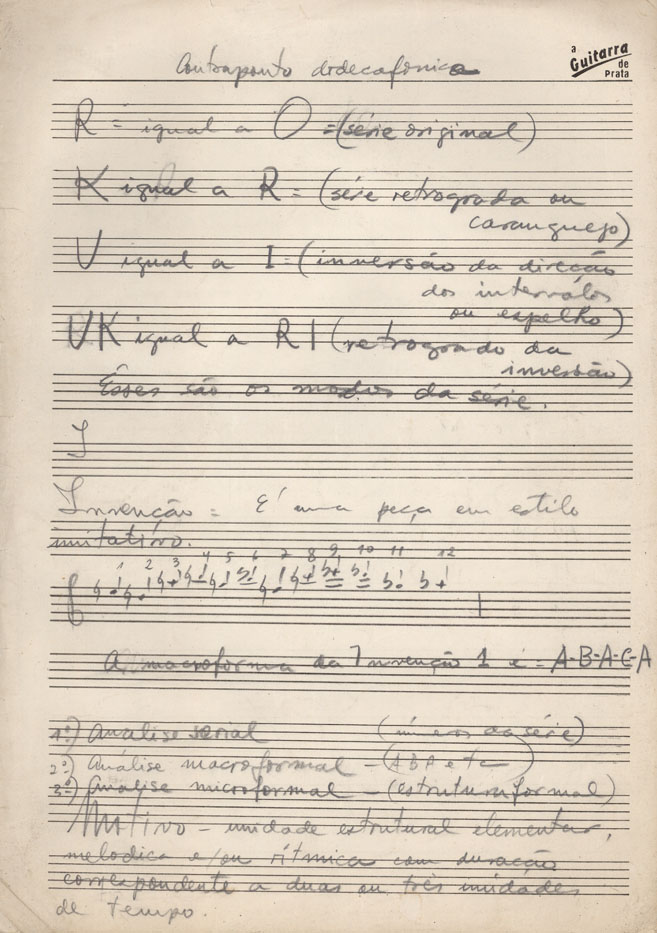 a
Guitarra
de
Prata
Contraponto dodecafônico
R = igual a O = (série original)
K igual a R = (série retrograda ou
caranguejo)
V igual a I = (inversão da direção
dos intervalos
ou espelho)
VK igual a RI (retrogrado da
inversão)
Êsses são os modos da série.
I
Invenção = E' uma peça em estilo
imitativo.
1 2 3 4 5 6 7 8 9 10 11 12
A macroforma da Invenção 1 é = A-B-A-C-A
1º) Analise serial (números da série)
2º) Análise macroformal - (A B A etc)
3º) Análise microformal - (estrutura formal)
Motivo - unidade estrutural elementar,
melodica e/ou rítmica com duração
correspondente a duas ou três unidades
de tempo.